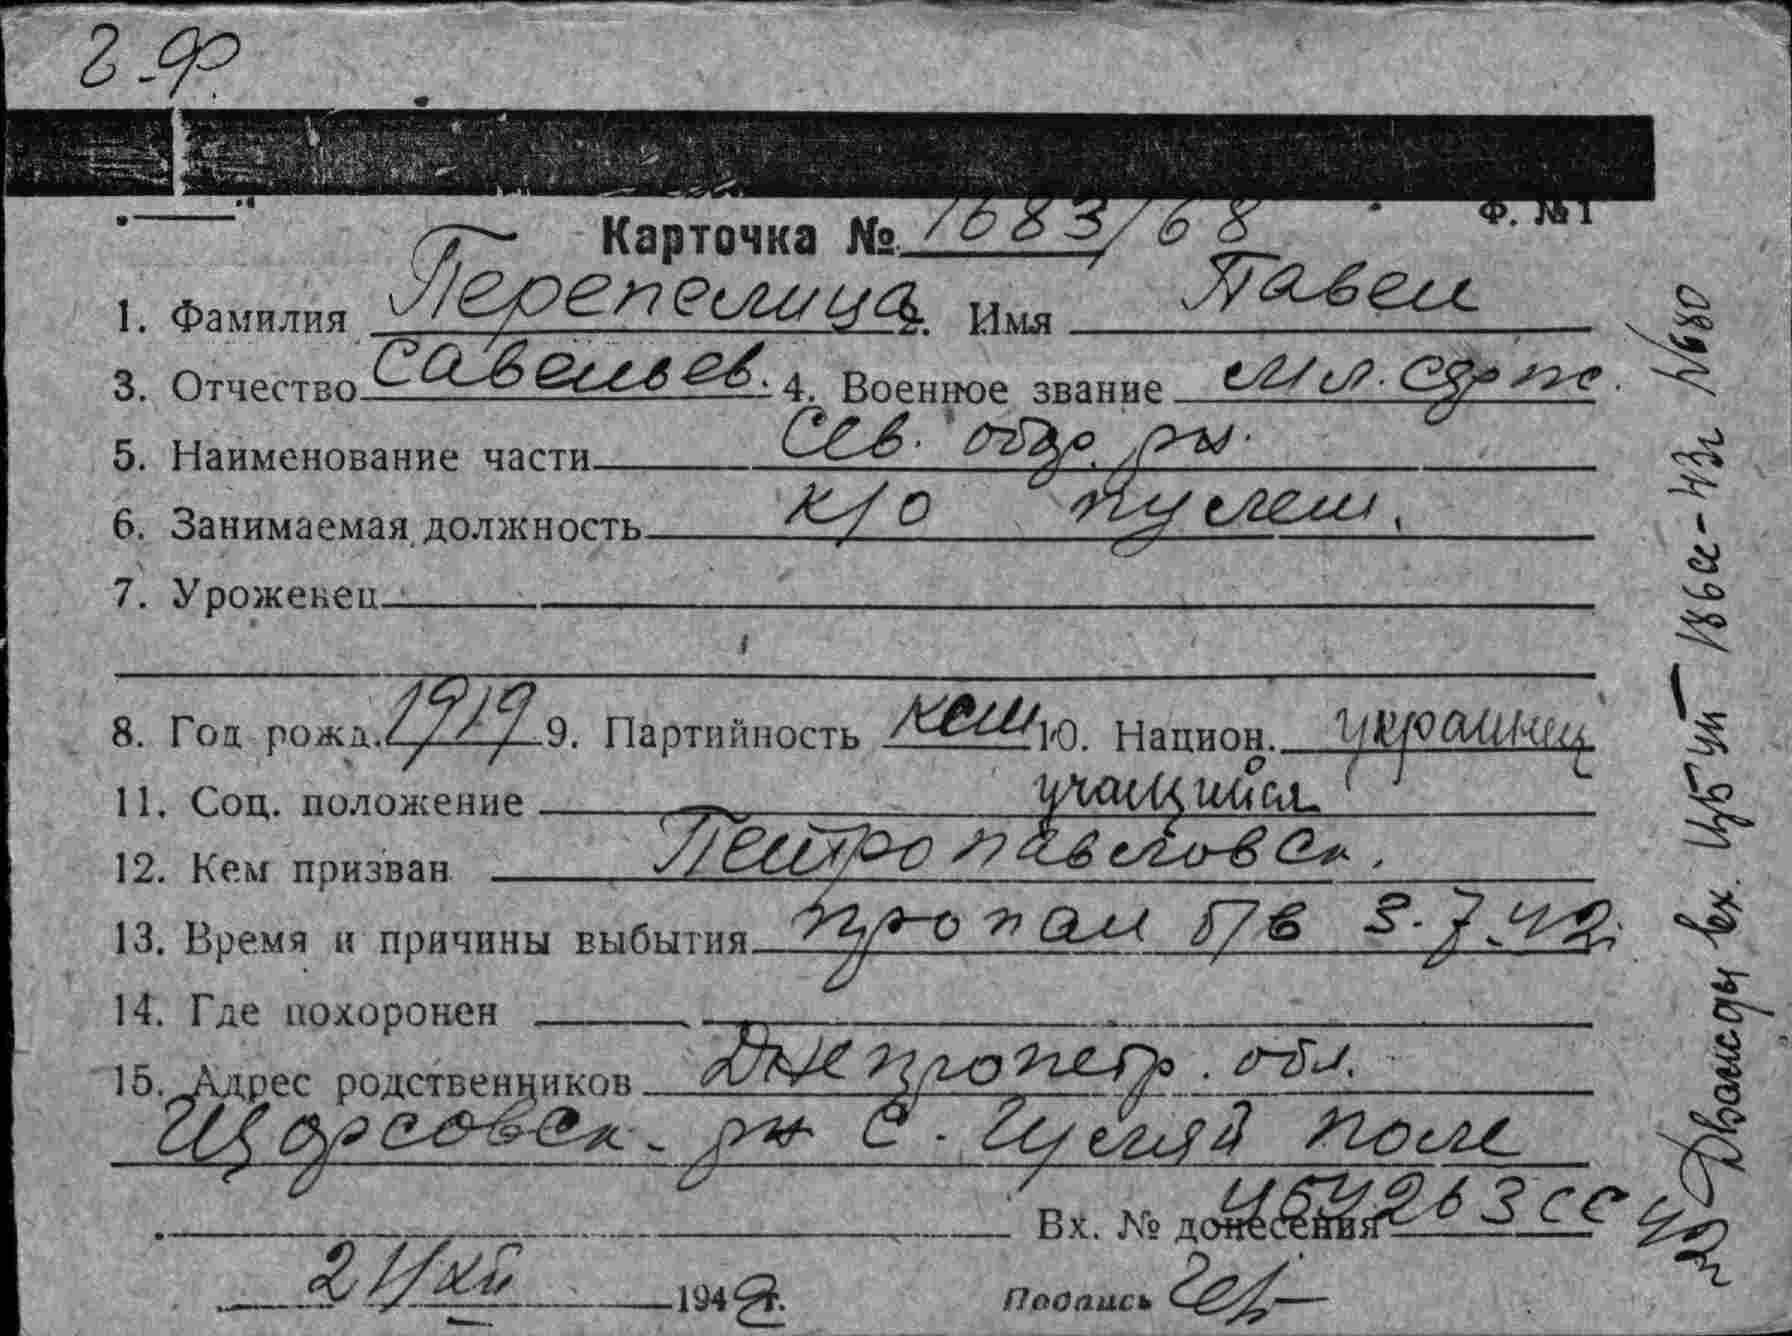 Г.Ф.
Карточка № 1683/68 Ф. №1
1. Фамилия Перепелица 2. Имя Павел
3. Отчество Савельев. 4. Военное звание мл. серж.
5. Наименование части Сев. обор. р-н.
6. Занимаемая должность к/о пулем.
7. Уроженец
8. Год рожд. 1919 9. Партийность ксм 10. Национ. украинец
11. Соц. положение учащийся
12. Кем призван Петропавловск.
13. Время и причины выбытия пропал б/в 3.7.42г
14. Где похоронен
15. Адрес родственников Днепропетр. обл.
Щорсовск. р-н с. Гуляй поле
Вх. № донесения 263сс 42г
21/XII 1942г. Подпись
Дважды вх. 186сс-43г №680